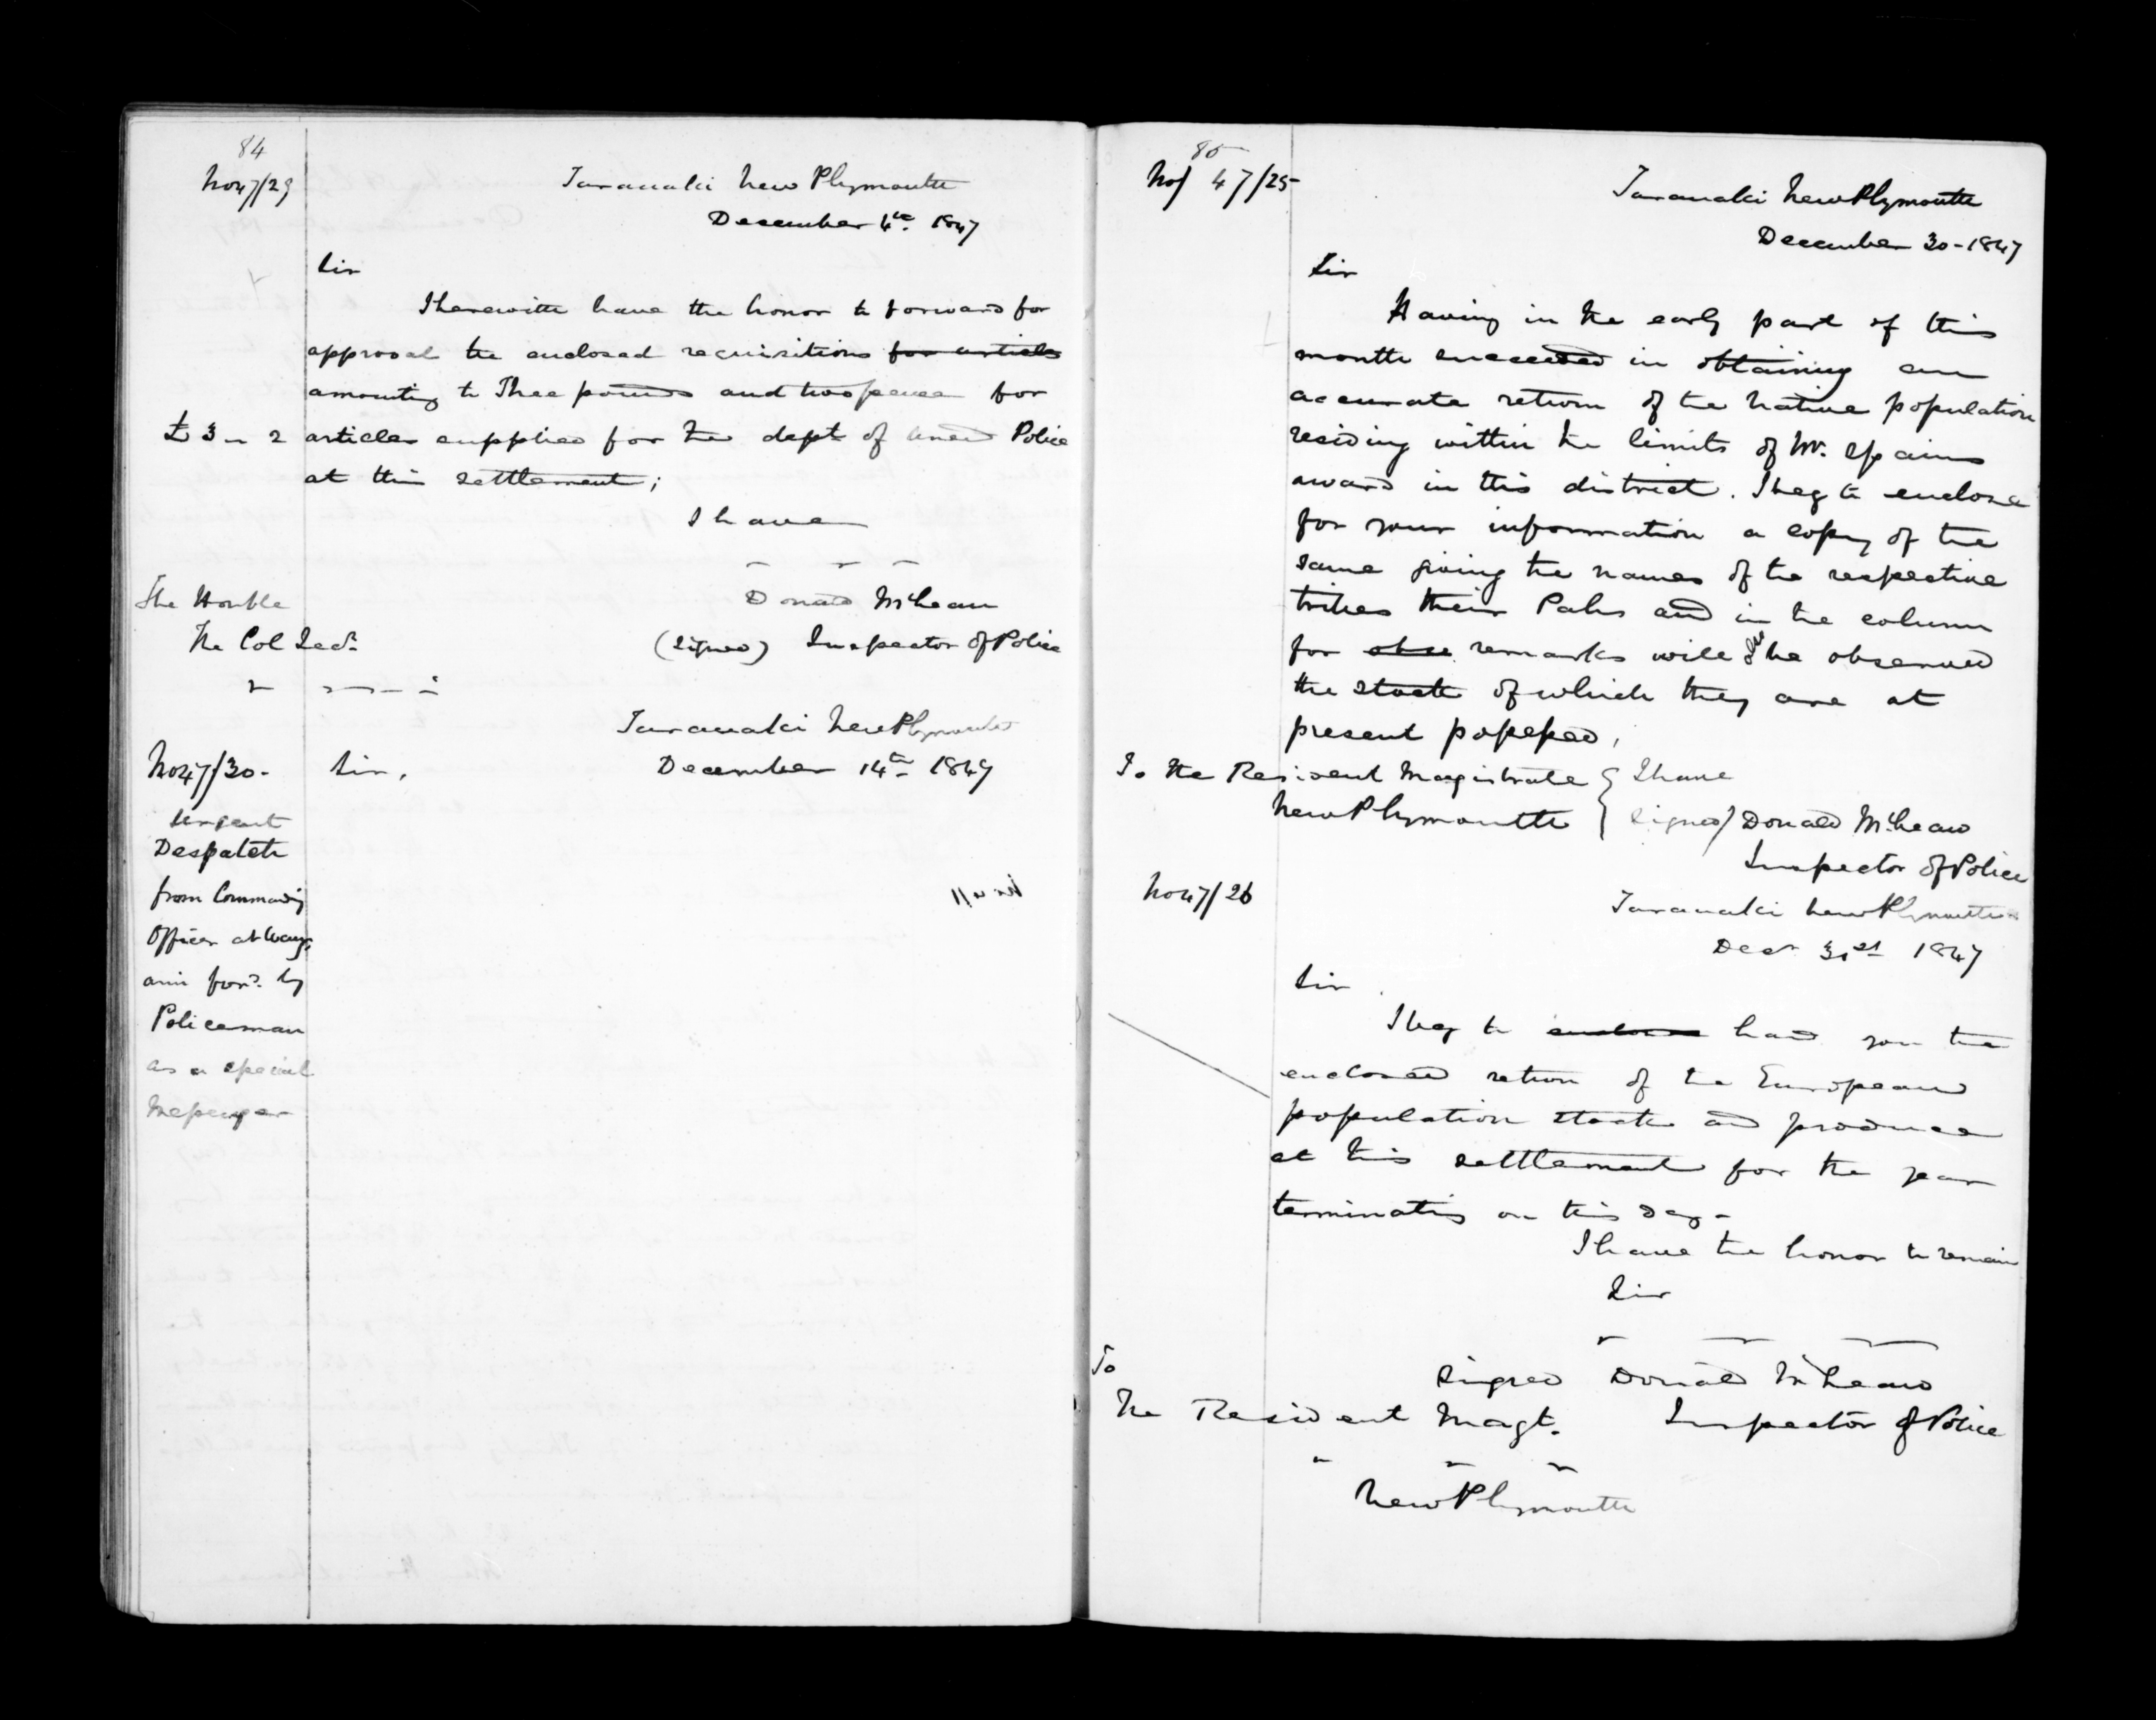 84
No 47/29
Taranaki New Plymouth
December 4th 1847
Sir
I herewith have the honor to forward for
approval the enclosed requisitions for articles
amounting to Three pounds and twopence for
£3 " 2 articles supplied for the dept of armed Police
at this settlement;
I have
Donald McLean
(signed) Inspector of Police
The Honble
The Col Secy
Taranaki New Plymouth
No 47/30- Sir, December 14th 1847
Urgent
Despatch
from Commandg
Officer at Wang
anui ford. by
Policeman
as a special
Messenger
85
No/ 47/25
Taranaki New Plymouth
December 30-1847
Sir
Having in the early part of this
month succeeded in obtaining an
accurate return of the native population
residing within the limits of Mr. Spains
award in this district. I beg to enclose
for your information a copy of the
same giving the names of the respective
tribes their Pahs and in the column
for remarks will be observed
the stock of which they are at
present possessed,
To the Resident Magistrate { I have
New Plymouth { signed/ Donald McLean
Inspector of Police
No 47/26
Taranaki New Plymouth
Decr 31st 1847
Sir
I beg to enclose hand you the
enclosed return of the European
population stock and produce
at this settlement for the year
terminating on this day-
I have the honor to remain
Sir
To
signed Donald McLean
The Resident Magt. Inspector of Police
New Plymouth